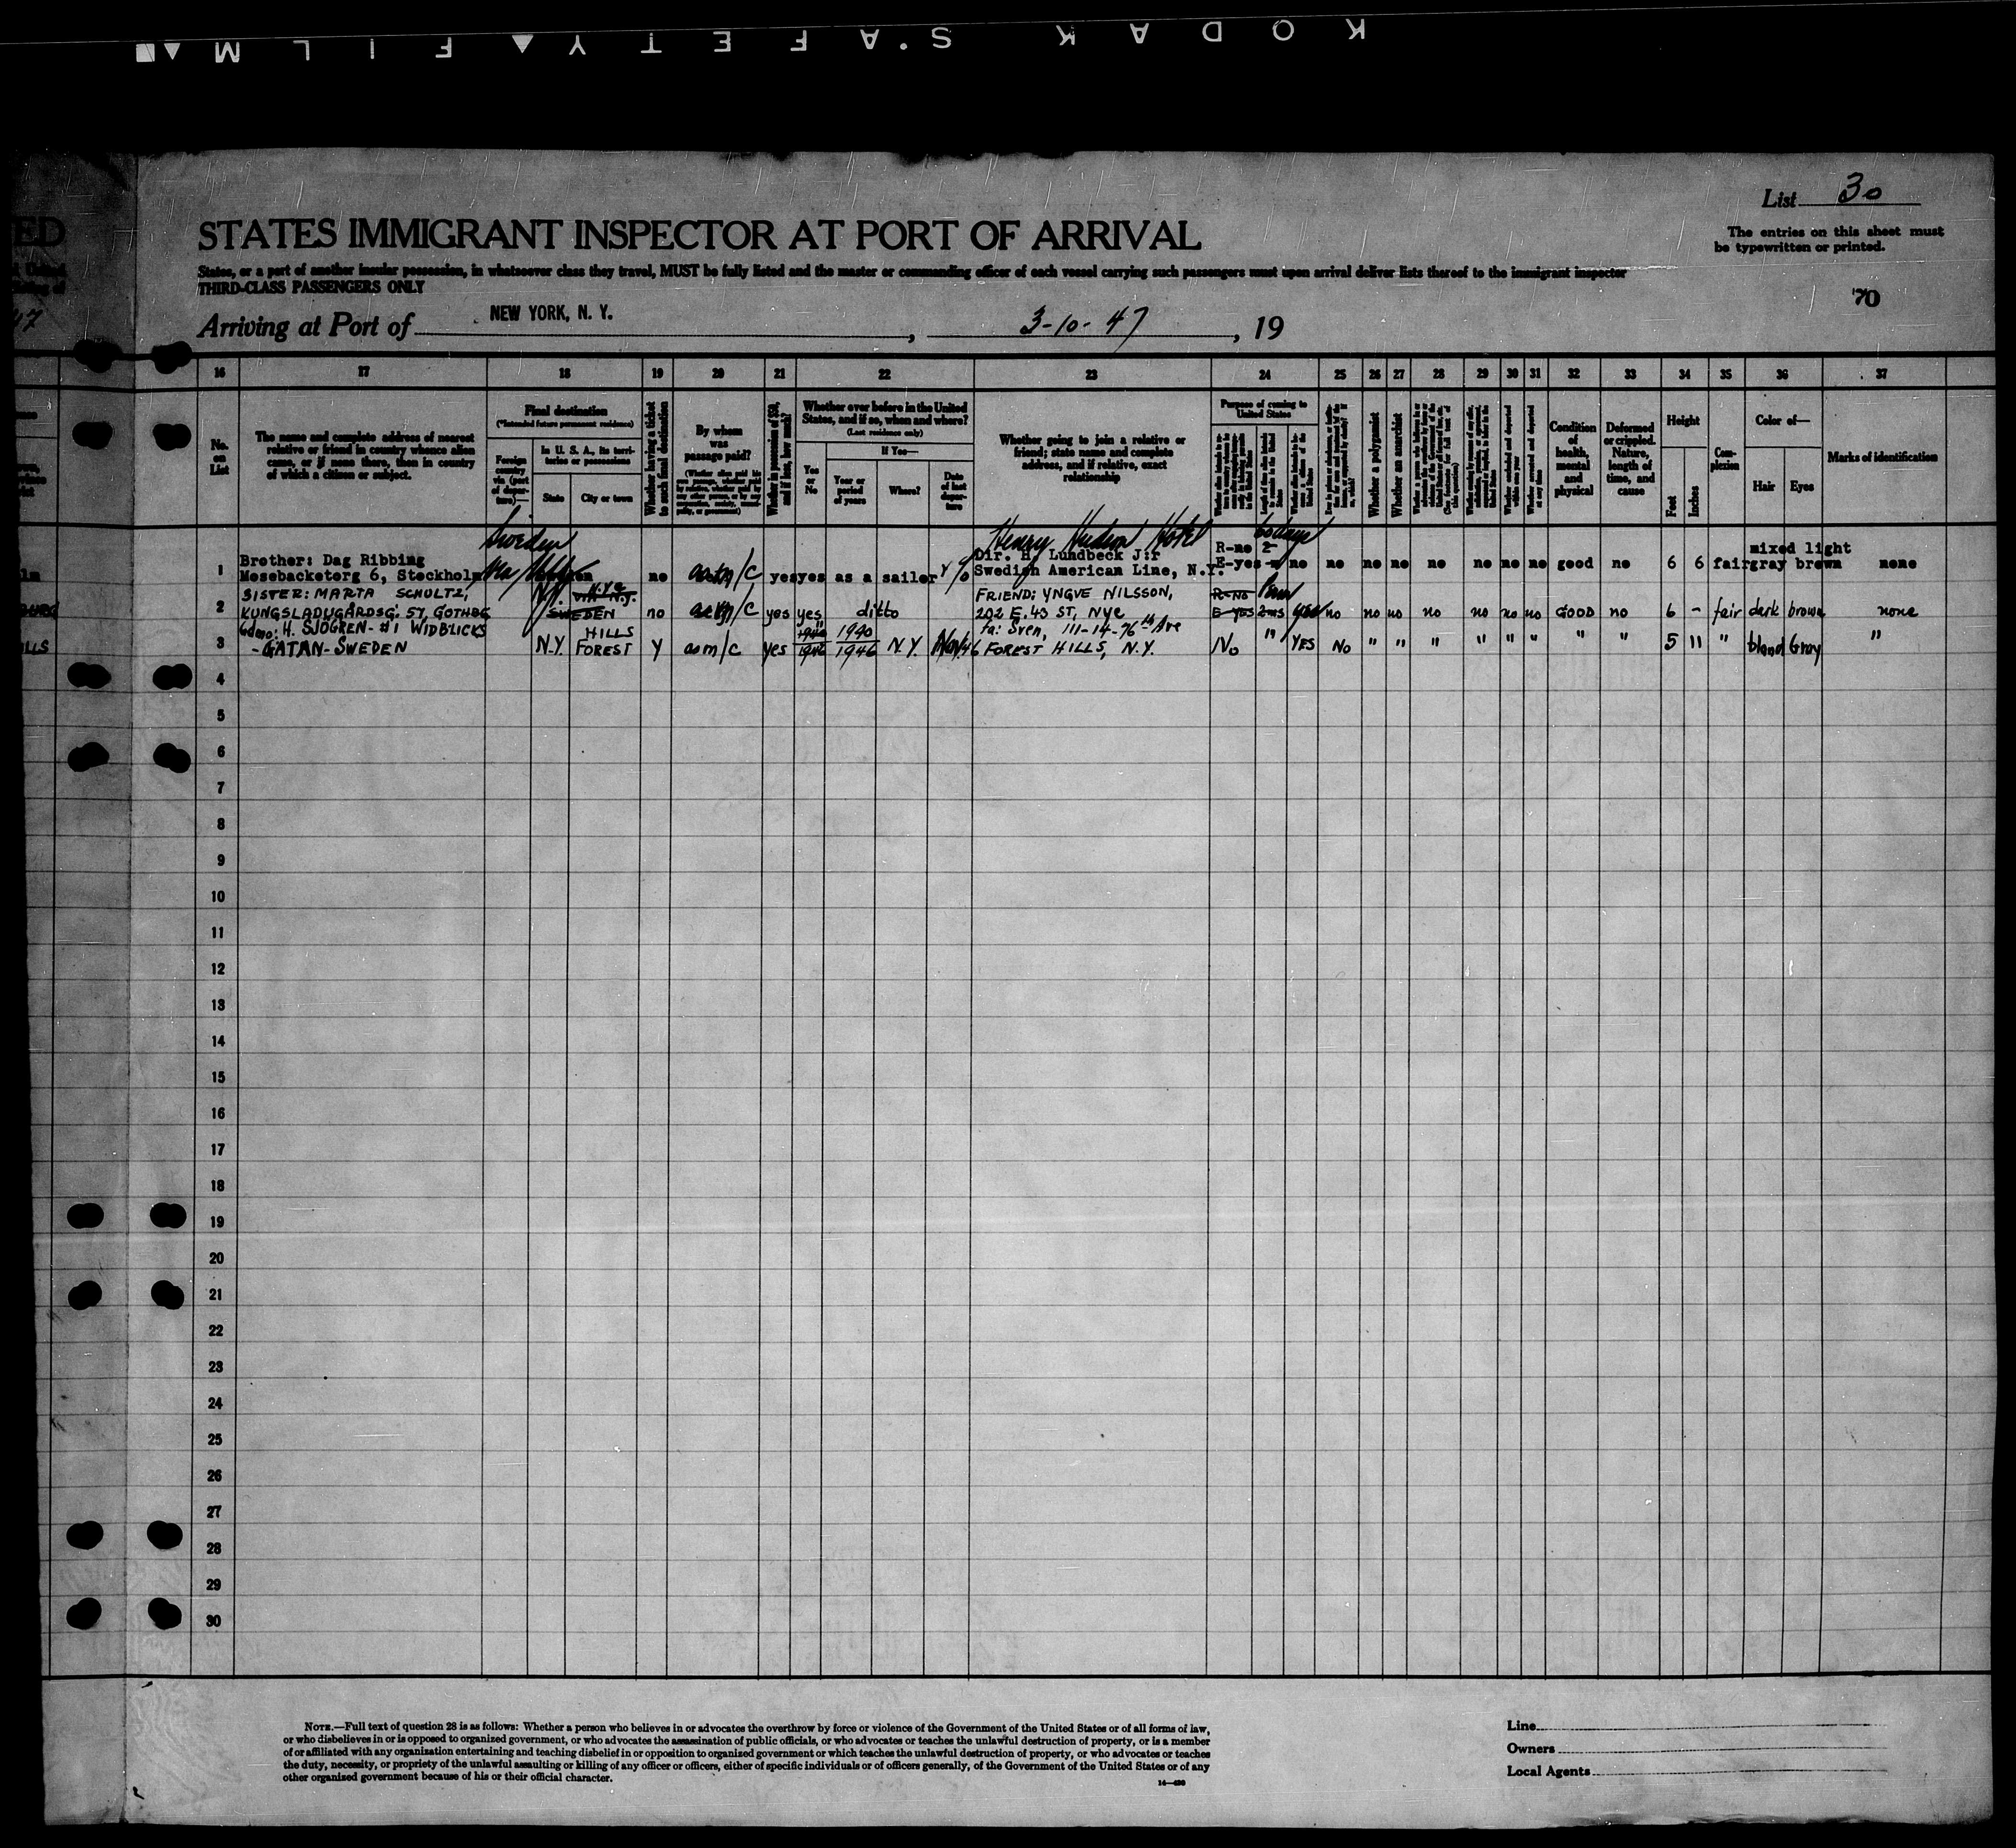 KODAK SAFETY FILM
ED
47
List 30
STATES IMMIGRANT INSPECTOR AT PORT OF ARRIVAL
The entries on this sheet must
be typewritten or printed.
States, or a part of another insular possession, in whatsoever class they travel, MUST be fully listed and the master or commanding officer of each vessel carrying such passengers must upon arrival deliver lists thereof to the immigrant inspector
THIRD-CLASS PASSENGERS ONLY
70
Arriving at Port of NEW YORK, N. Y., 3-10-47, 19
16 17 18 19 20 21 22 23 24 25 26 27 28 29 30 31 32 33 34 35 36 37
No. on List
The name and complete address of nearest relative or friend in country whence alien came, or if none there, then in country of which a citizen or subject.
Final destination
(*Intended future permanent residence)
Foreign country via (port of departure)
In U. S. A., its territories or possessions
State
City or town
Whether having a ticket to such final destination
By whom was passage paid?
Whether in possession of $50, and if less, how much?
Whether ever before in the United States, and if so, when and where?
(Last residence only)
Yes or No
If Yes—
Year or period of years
Where?
Date of last departure
Whether going to join a relative or friend; state name and complete address, and if relative, exact relationship
Purpose of coming to United States
Whether a polygamist
Whether an anarchist
Condition of health, mental and physical
Deformed or crippled. Nature, length of time, and cause
Height
Feet
Inches
Complexion
Color of—
Hair
Eyes
Marks of identification
Sweden
Henry Hudson Hotel
60 days
1 Brother: Dag Ribbing
Mosebacketorg 6, Stockholm
no yes yes as a sailor
Dir. H. Lundbeck J:r
Swedish American Line, N.Y.
R-no 2-
E-yes no no no no no no no no good no 6 6 fair
mixed light
gray brown none
2 SISTER: MARTA SCHULTZ,
KUNGSLADUGÅRDSG: 57, GOTHBG
N.Y. SWEDEN no yes yes ditto
FRIEND: YNGVE NILSSON,
202 E. 43 ST, NYC
R-NO
E-YES 2ms yes no no no no no no no GOOD no 6 - fair dark brown none
3 Gdmo: H. SJOGREN- #1 WIDBLICKS
-GATAN-SWEDEN
N.Y. HILLS
FOREST Y yes 1940
1946 N.Y. Nov/46
Fa: Sven, 111-14-76th Ave
FOREST HILLS, N.Y.
No " YES No " " " " " " " " 5 11 " blond Gray "
4
5
6
7
8
9
10
11
12
13
14
15
16
17
18
19
20
21
22
23
24
25
26
27
28
29
30
NOTE.—Full text of question 28 is as follows: Whether a person who believes in or advocates the overthrow by force or violence of the Government of the United States or of all forms of law,
or who disbelieves in or is opposed to organized government, or who advocates the assassination of public officials, or who advocates or teaches the unlawful destruction of property, or is a member
of or affiliated with any organization entertaining and teaching disbelief in or opposition to organized government or which teaches the unlawful destruction of property, or who advocates or teaches
the duty, necessity, or propriety of the unlawful assaulting or killing of any officer or officers, either of specific individuals or of officers generally, of the Government of the United States or of any
other organized government because of his or their official character.
Line
Owners
Local Agents